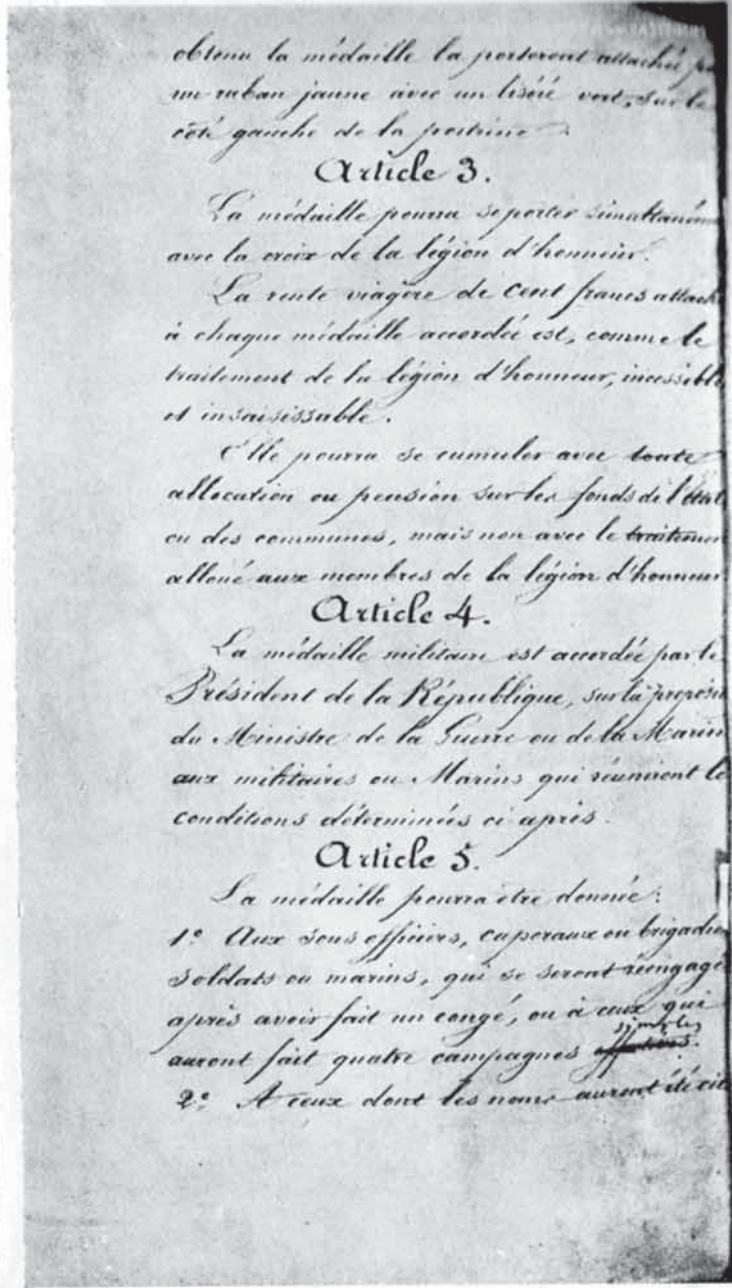 obtenu la médaille la porteront attachée p
un raban jaune avec un liséré vert, sur le
côté gauche de la poitrine.
Article 3.
La médaille pourra se porter simultaném
avec la croix de la légion d'honneur.
La rente viagère de cent francs attach
à chaque médaille accordée est, comme le
traitement de la légion d'honneur, incessible
et insaisissable.
Elle pourra se cumuler avec toute
allocation ou pension sur les fonds de l'état
ou des communes, mais non avec le traitemen
alloué aux membres de la légion d'honneur
Article 4.
La médaille militaire est accordée par le
Président de la République, sur la proposi
du Ministre de la Guerre ou de la Marin
aux militaires ou Marins qui réuniront le
conditions déterminées ci après.
Article 5.
La médaille pourra être donnée :
1° Aux sous officiers, caporaux ou brigadie
soldats ou marins, qui se seront réengagé
après avoir fait un congé, ou à ceux qui
simples
auront fait quatre campagnes
2° A ceux dont les noms auront été cit